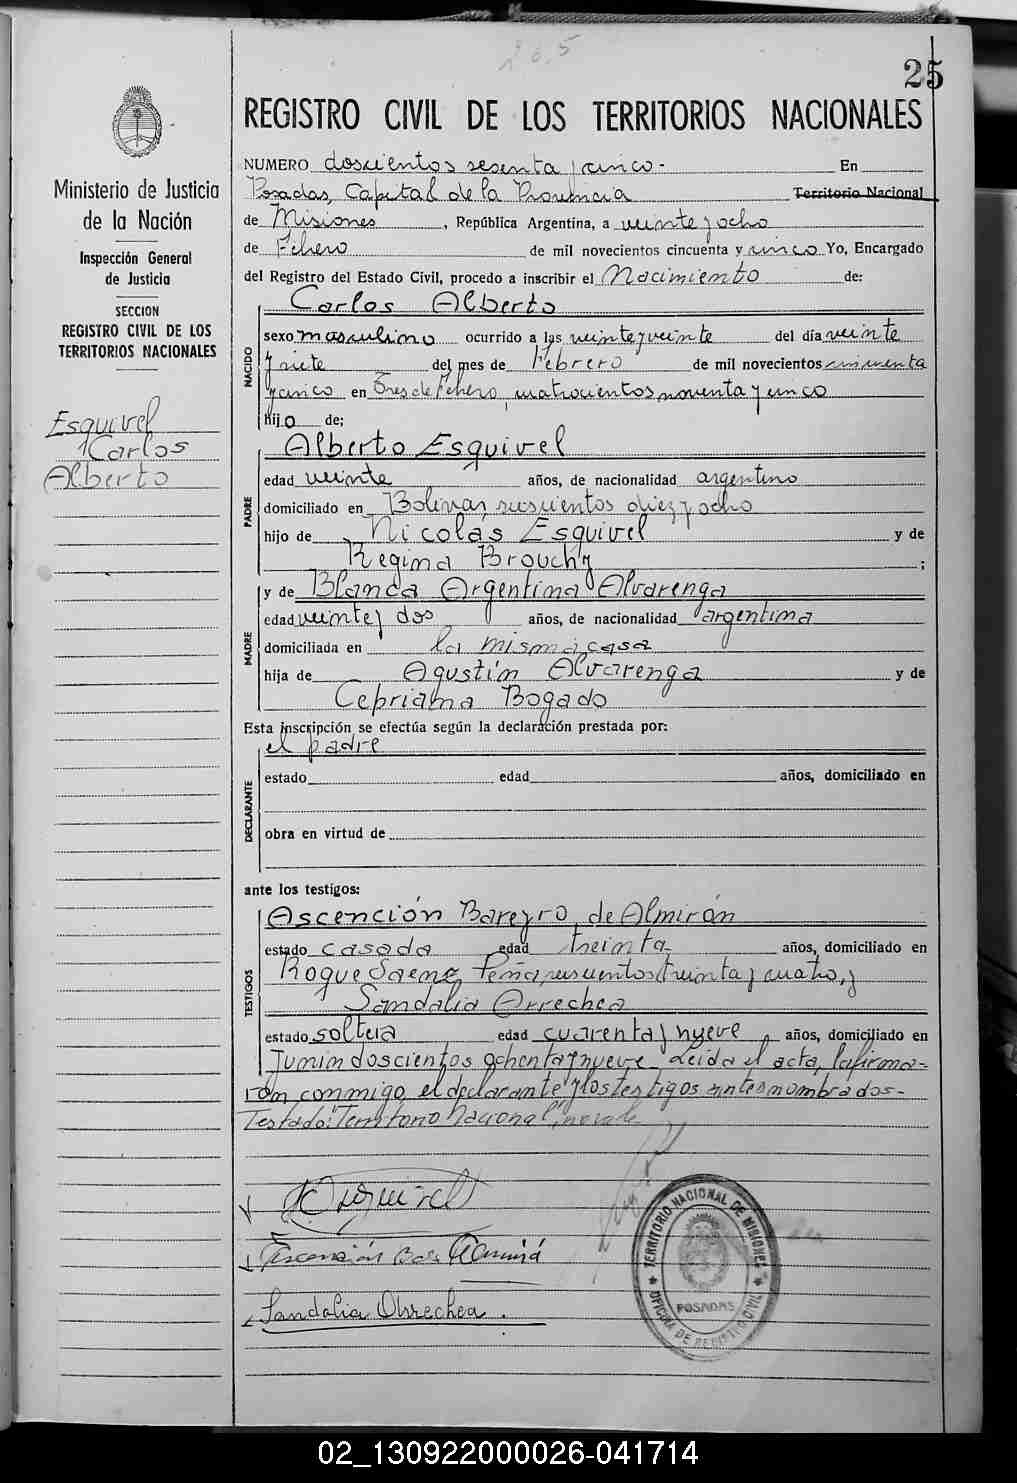 265
25
Ministerio de Justicia
de la Nación
Inspección General
de Justicia
SECCION
REGISTRO CIVIL DE LOS
TERRITORIOS NACIONALES
Esquivel
Carlos
Alberto
REGISTRO CIVIL DE LOS TERRITORIOS NACIONALES
NUMERO doscientos sesenta y cinco - En
Posadas, Capital de la Provincia Territorio Nacional
de Misiones, República Argentina, a veinte y ocho
de Febrero de mil novecientos cincuenta y cinco Yo, Encargado
del Registro del Estado Civil, procedo a inscribir el Nacimiento de:
NACIDO
Carlos Alberto
sexo masculino ocurrido a las veinte y veinte del día veinte
y siete del mes de Febrero de mil novecientos cincuenta
y cinco en Tres de Febrero, cuatrocientos noventa y cinco
hijo de;
PADRE
Alberto Esquivel
edad veinte años, de nacionalidad argentino
domiciliado en Bolivar, seiscientos diez y ocho
hijo de Nicolás Esquivel y de
Regina Brouchy ;
MADRE
y de Blanca Argentina Alvarenga
edad veinte y dos años, de nacionalidad argentina
domiciliada en la misma casa
hija de Agustín Alvarenga y de
Cepriana Bogado
Esta inscripción se efectúa según la declaración prestada por:
DECLARANTE
el padre
estado edad años, domiciliado en
obra en virtud de
ante los testigos:
TESTIGOS
Ascención Bareyro de Almirón
estado casada edad treinta años, domiciliado en
Roque Saenz Peña, seiscientos treinta y cuatro, y
Sandalia Orrechea
estado soltera edad cuarenta y nueve, años, domiciliado en
Junin doscientos ochenta y nueve - Leida el acta, la firma-
ron conmigo, el declarante y los testigos antes nombrados-
Testado: Territorio Nacional, no vale
Esquivel
Ascención B de Almirón
Sandalia Orrechea.
TERRITORIO NACIONAL DE MISIONES
POSADAS
OFICINA DE REGISTRO CIVIL
02_130922000026-041714